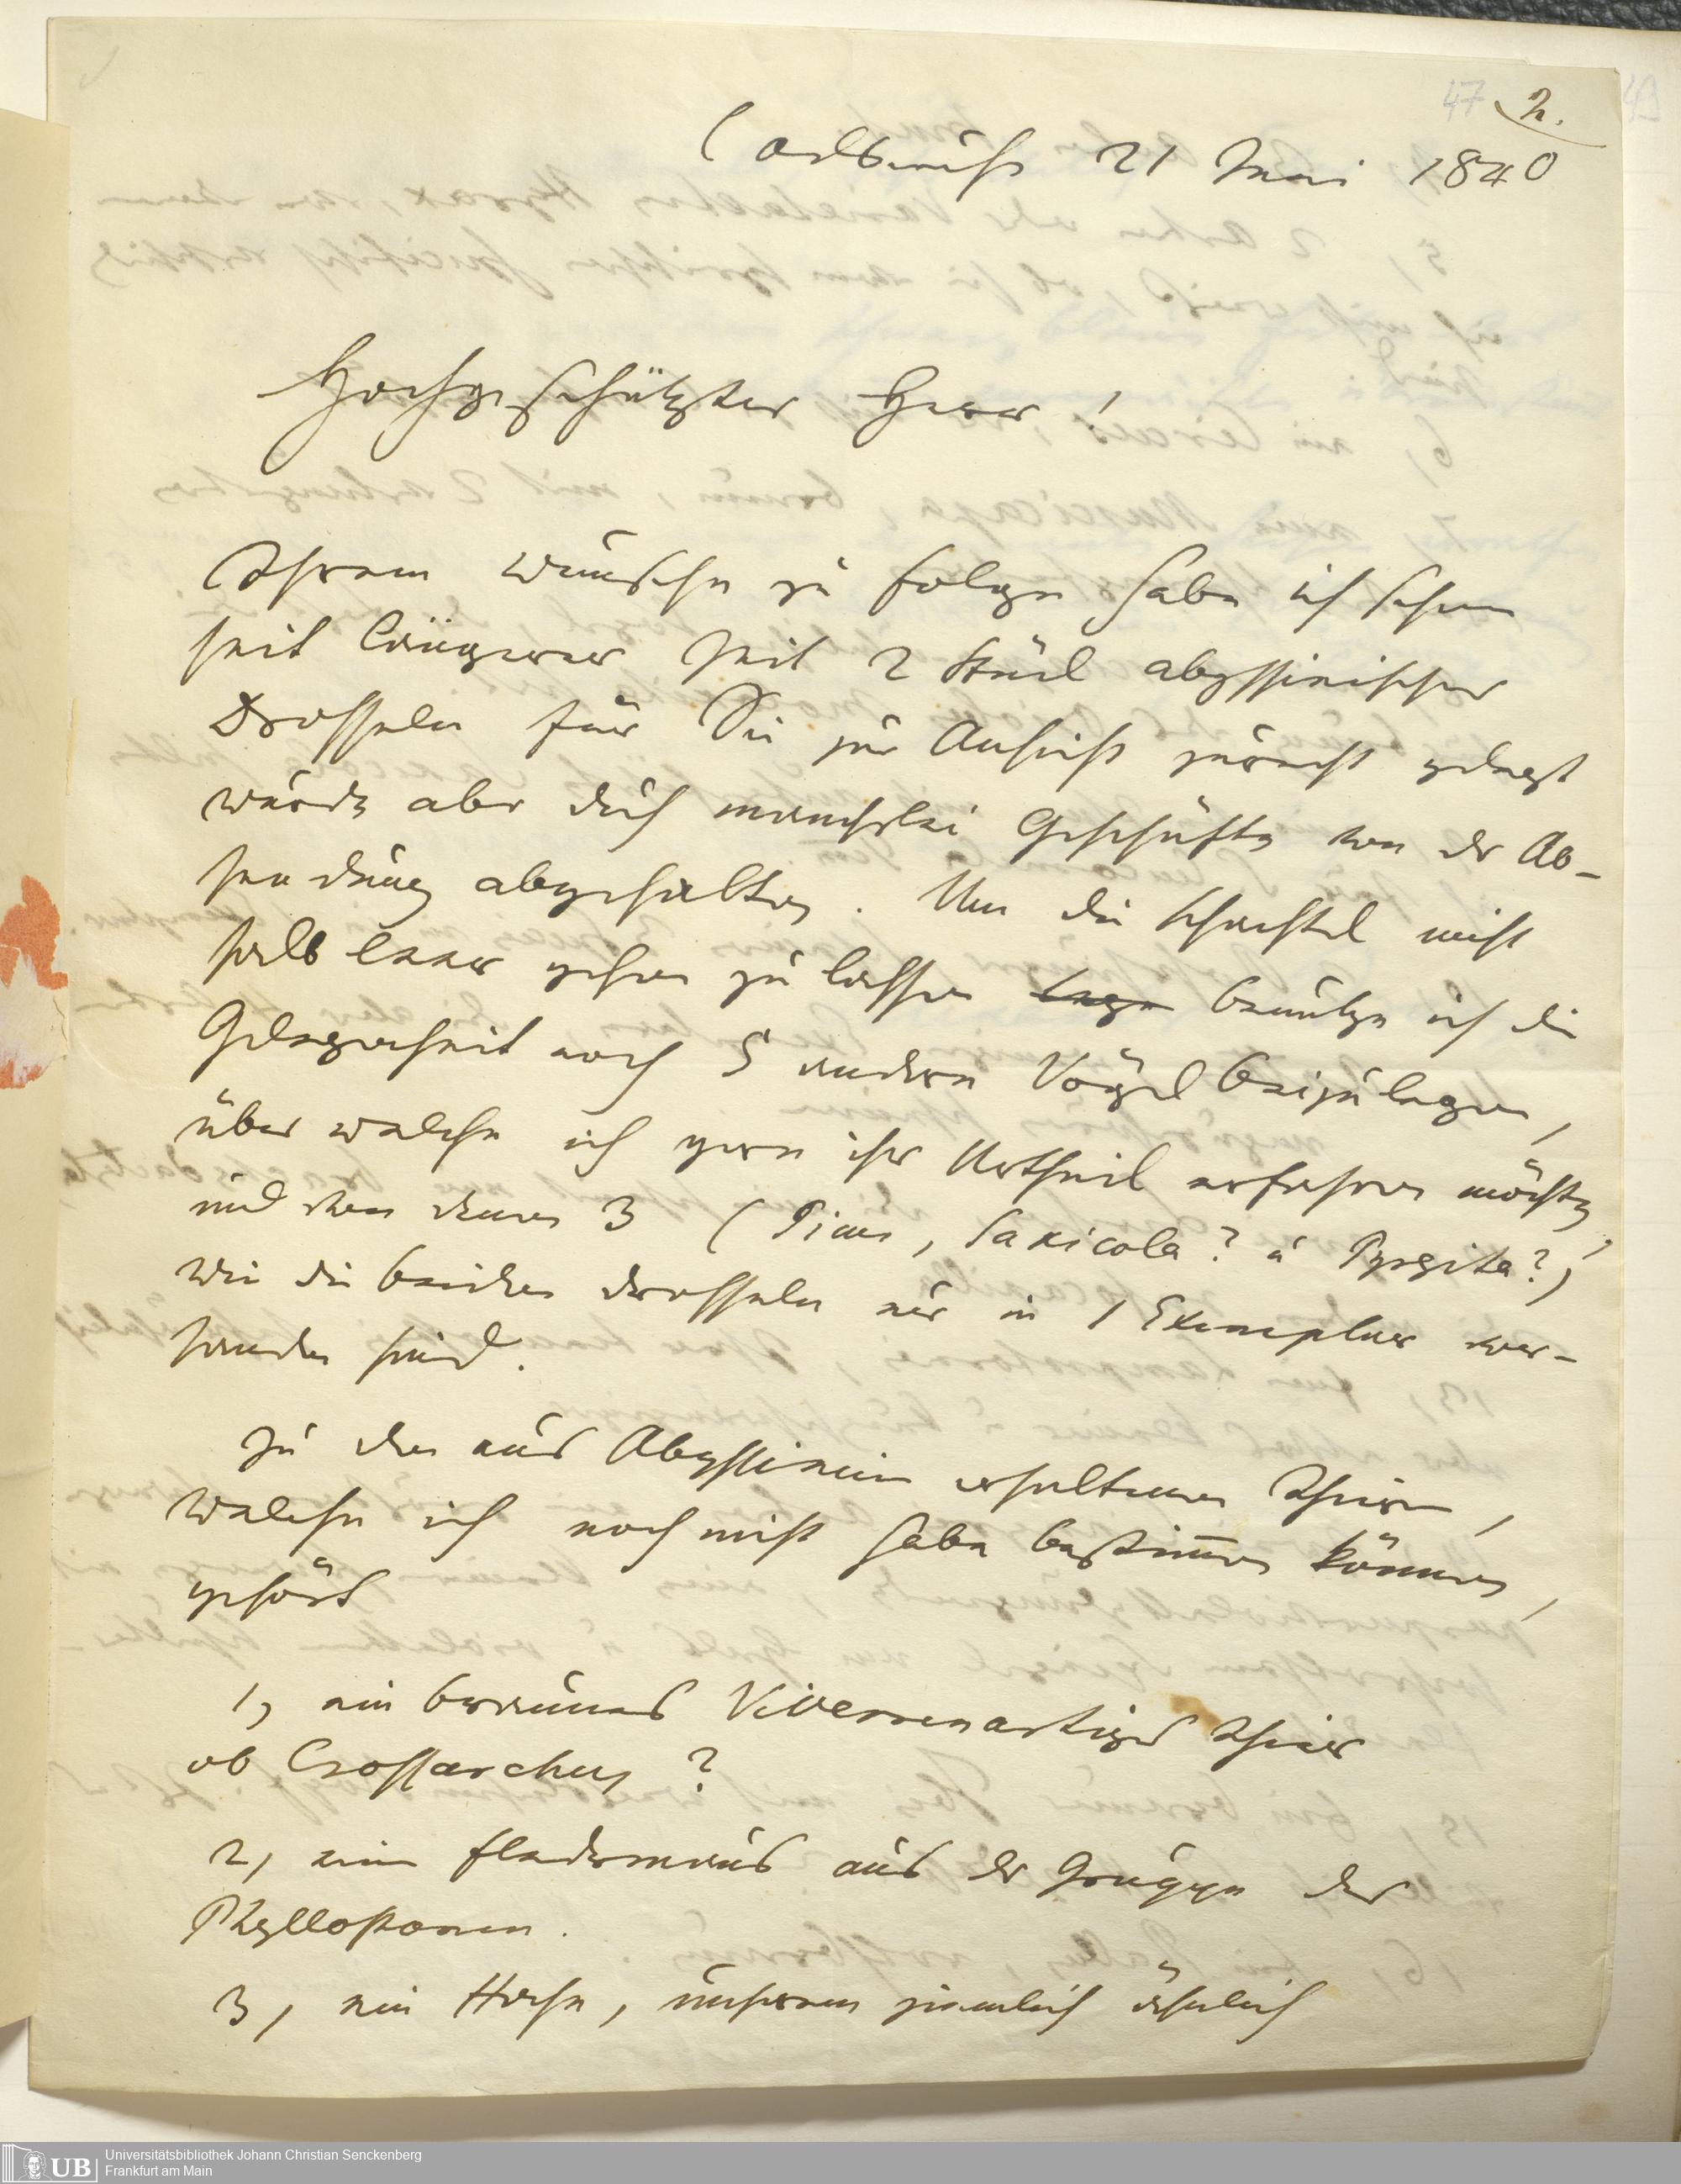 47 2.
Carlsruhe 21 Mai 1840
Hochgeschätzter Herr!
Ihrem Wunsche zu folge habe ich schon
seit längerer Zeit 2 Stück abyssinischer
Drosseln für Sie zur Ansicht zurecht gelegt
wurde aber durch mancherlei Geschäfte von der Ab-
sendung abgehalten. Um die Schachtel nicht
halb leer gehen zu lassen benutze ich die
Gelegenheit noch 5 andere Vögel beizulegen,
über welche ich gern ihr Urtheil erfahren möchte,
und von denen 3 (Picus, Saxicola? u Pyrgita?)
wie die beiden Drosseln nur in 1 Exemplar vor-
handen sind.
Zu den aus Abyssinien erhaltenen Thieren,
welche ich noch nicht habe bestim̅en können,
gehört
1, ein braunes Viverrenartiges Thier
ob Crossarchus?
2, eine Fledermaus aus der Gruppe der
Phyllostomen.
3, ein Hase, unserem ziemlich ähnlich
UB Universitätsbibliothek Johann Christian Senckenberg
Frankfurt am Main